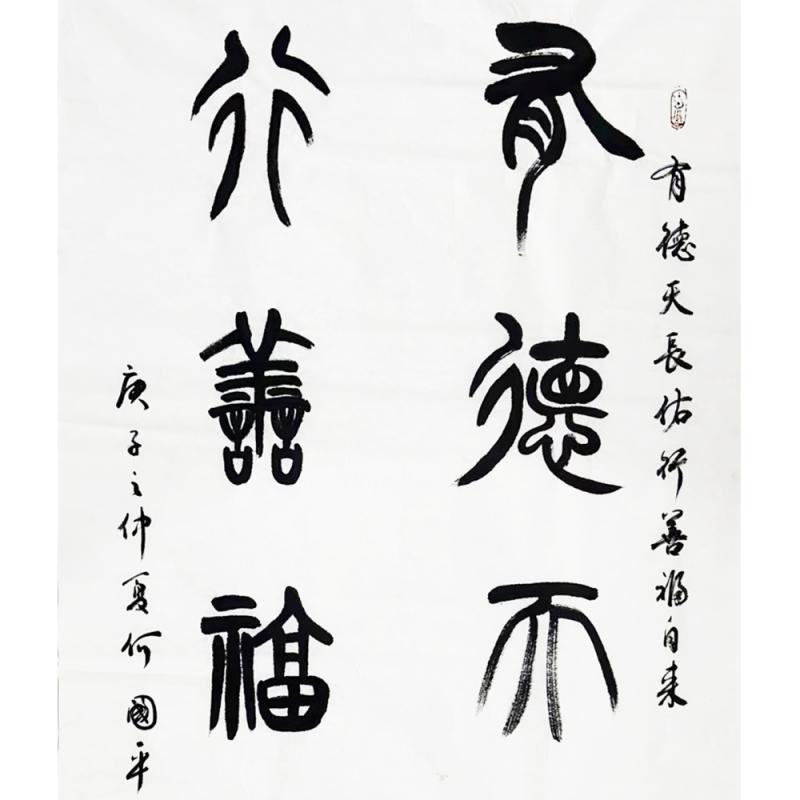 有德天長佑行善福自来
有德天
行善福
庚子之仲夏何國平